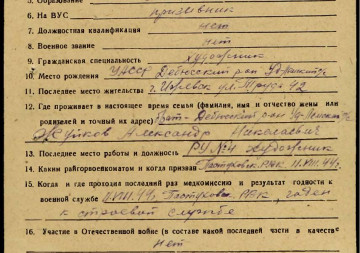 5. Образование
6. На ВУС призывник
7. Должностная квалификация нет
8. Военное звание нет
9. Гражданская специальность художник
10. Место рождения УАССР Дебесский р-н
11. Последнее место жительства г. Ижевск ул. Труда 42
12. Где проживает в настоящее время семья (фамилия, имя и отчество жены или
родителей и точный их адрес) брат - Дебесский р-н
Александр Николаевич
13. Последнее место работы и должность РУ №4 художник
14. Каким райгорвоенкоматом и когда признан Пастуховск. РВК
15. Когда и где проходил последний раз медкомиссию и результат годности к
военной службе Пастуховск. РВК, годен
к строевой службе
16. Участие в Отечественной войне (в составе какой последней части в качестве
нет